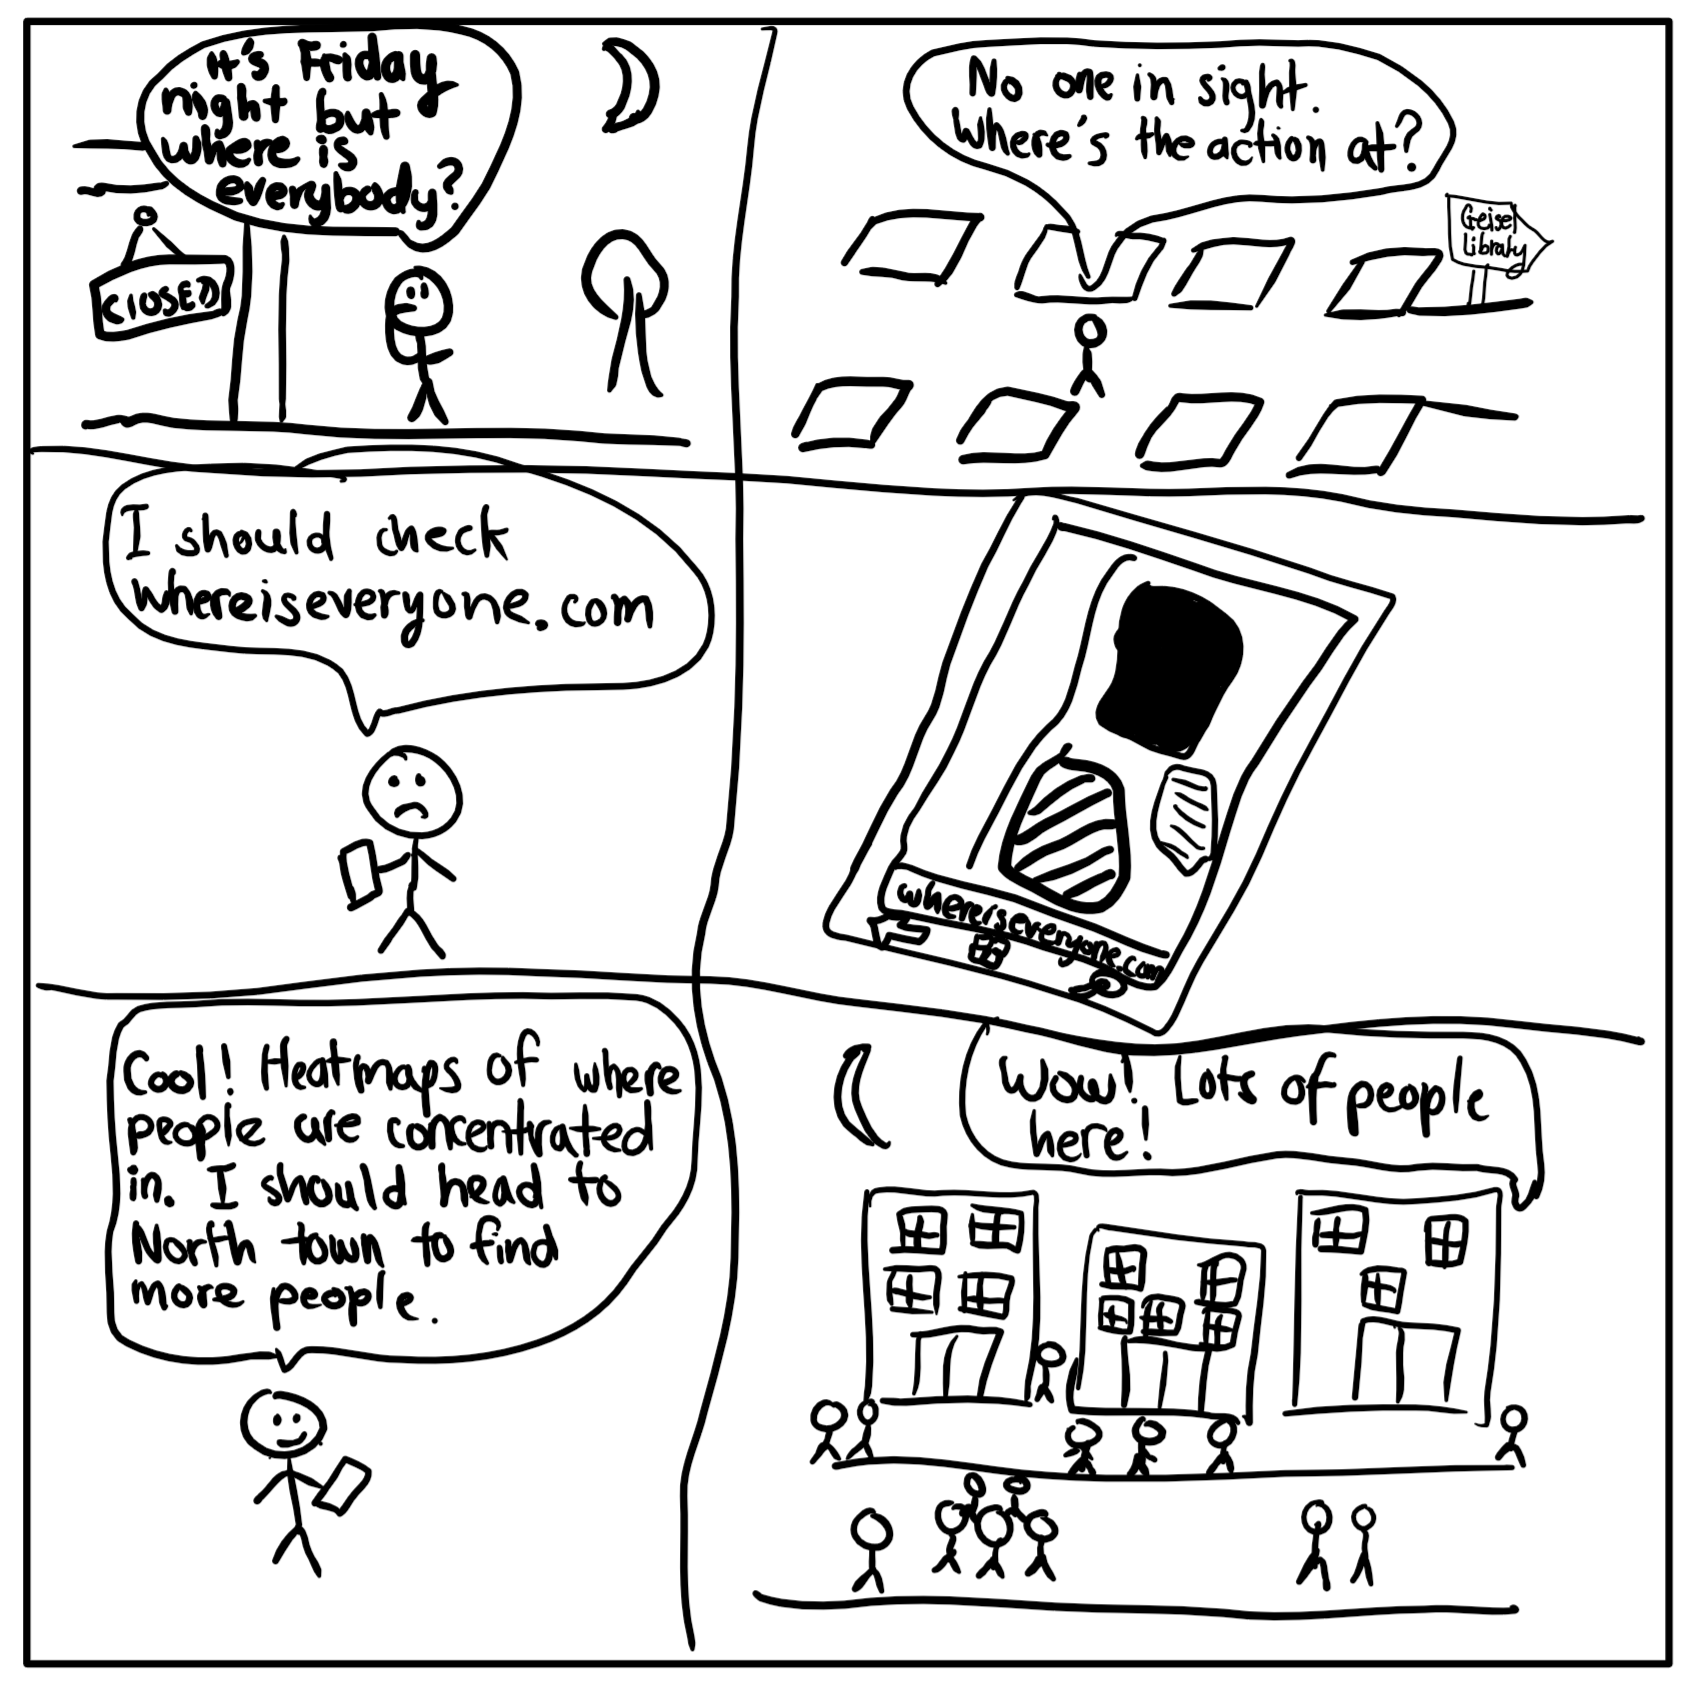 It's Friday
night but
where is
everybody?
CLOSED
No one in sight.
Where's the action at?
Geisel
Library
I should check
whereiseveryone.com
whereiseveryone.com
Cool! Heatmaps of where
people are concentrated
in. I should head to
North town to find
more people.
Wow! Lots of people
here!